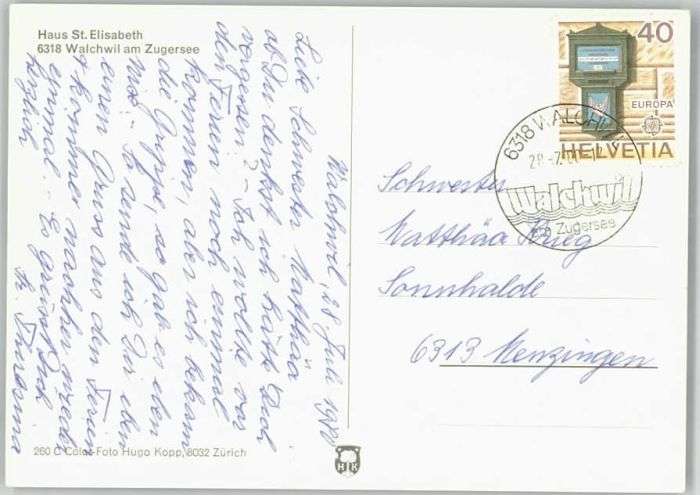 Haus St. Elisabeth
6318 Walchwil am Zugersee
Walchwil, 28. Juli 1980
Liebe Schwester Matthäa
ob Du denkst ich hätte Dich
vergessen? - Ich wollte vor
den Ferien noch einmal
kommen, aber ich bekam
die Grippe, so gab es den
Mist. - So sende ich Dir eben
einen Gruss aus den Ferien
+ komme nachher wieder
einmal. - Es grüsst Dich
herzlich
Sr.
260 C Color-Foto Hugo Kopp, 8032 Zürich
HK
40
EUROPA
HELVETIA
6318 WALCHWIL
Walchwil
am Zugersee
Schwester
Matthäa Krieg
Sonnhalde
6313 Menzingen